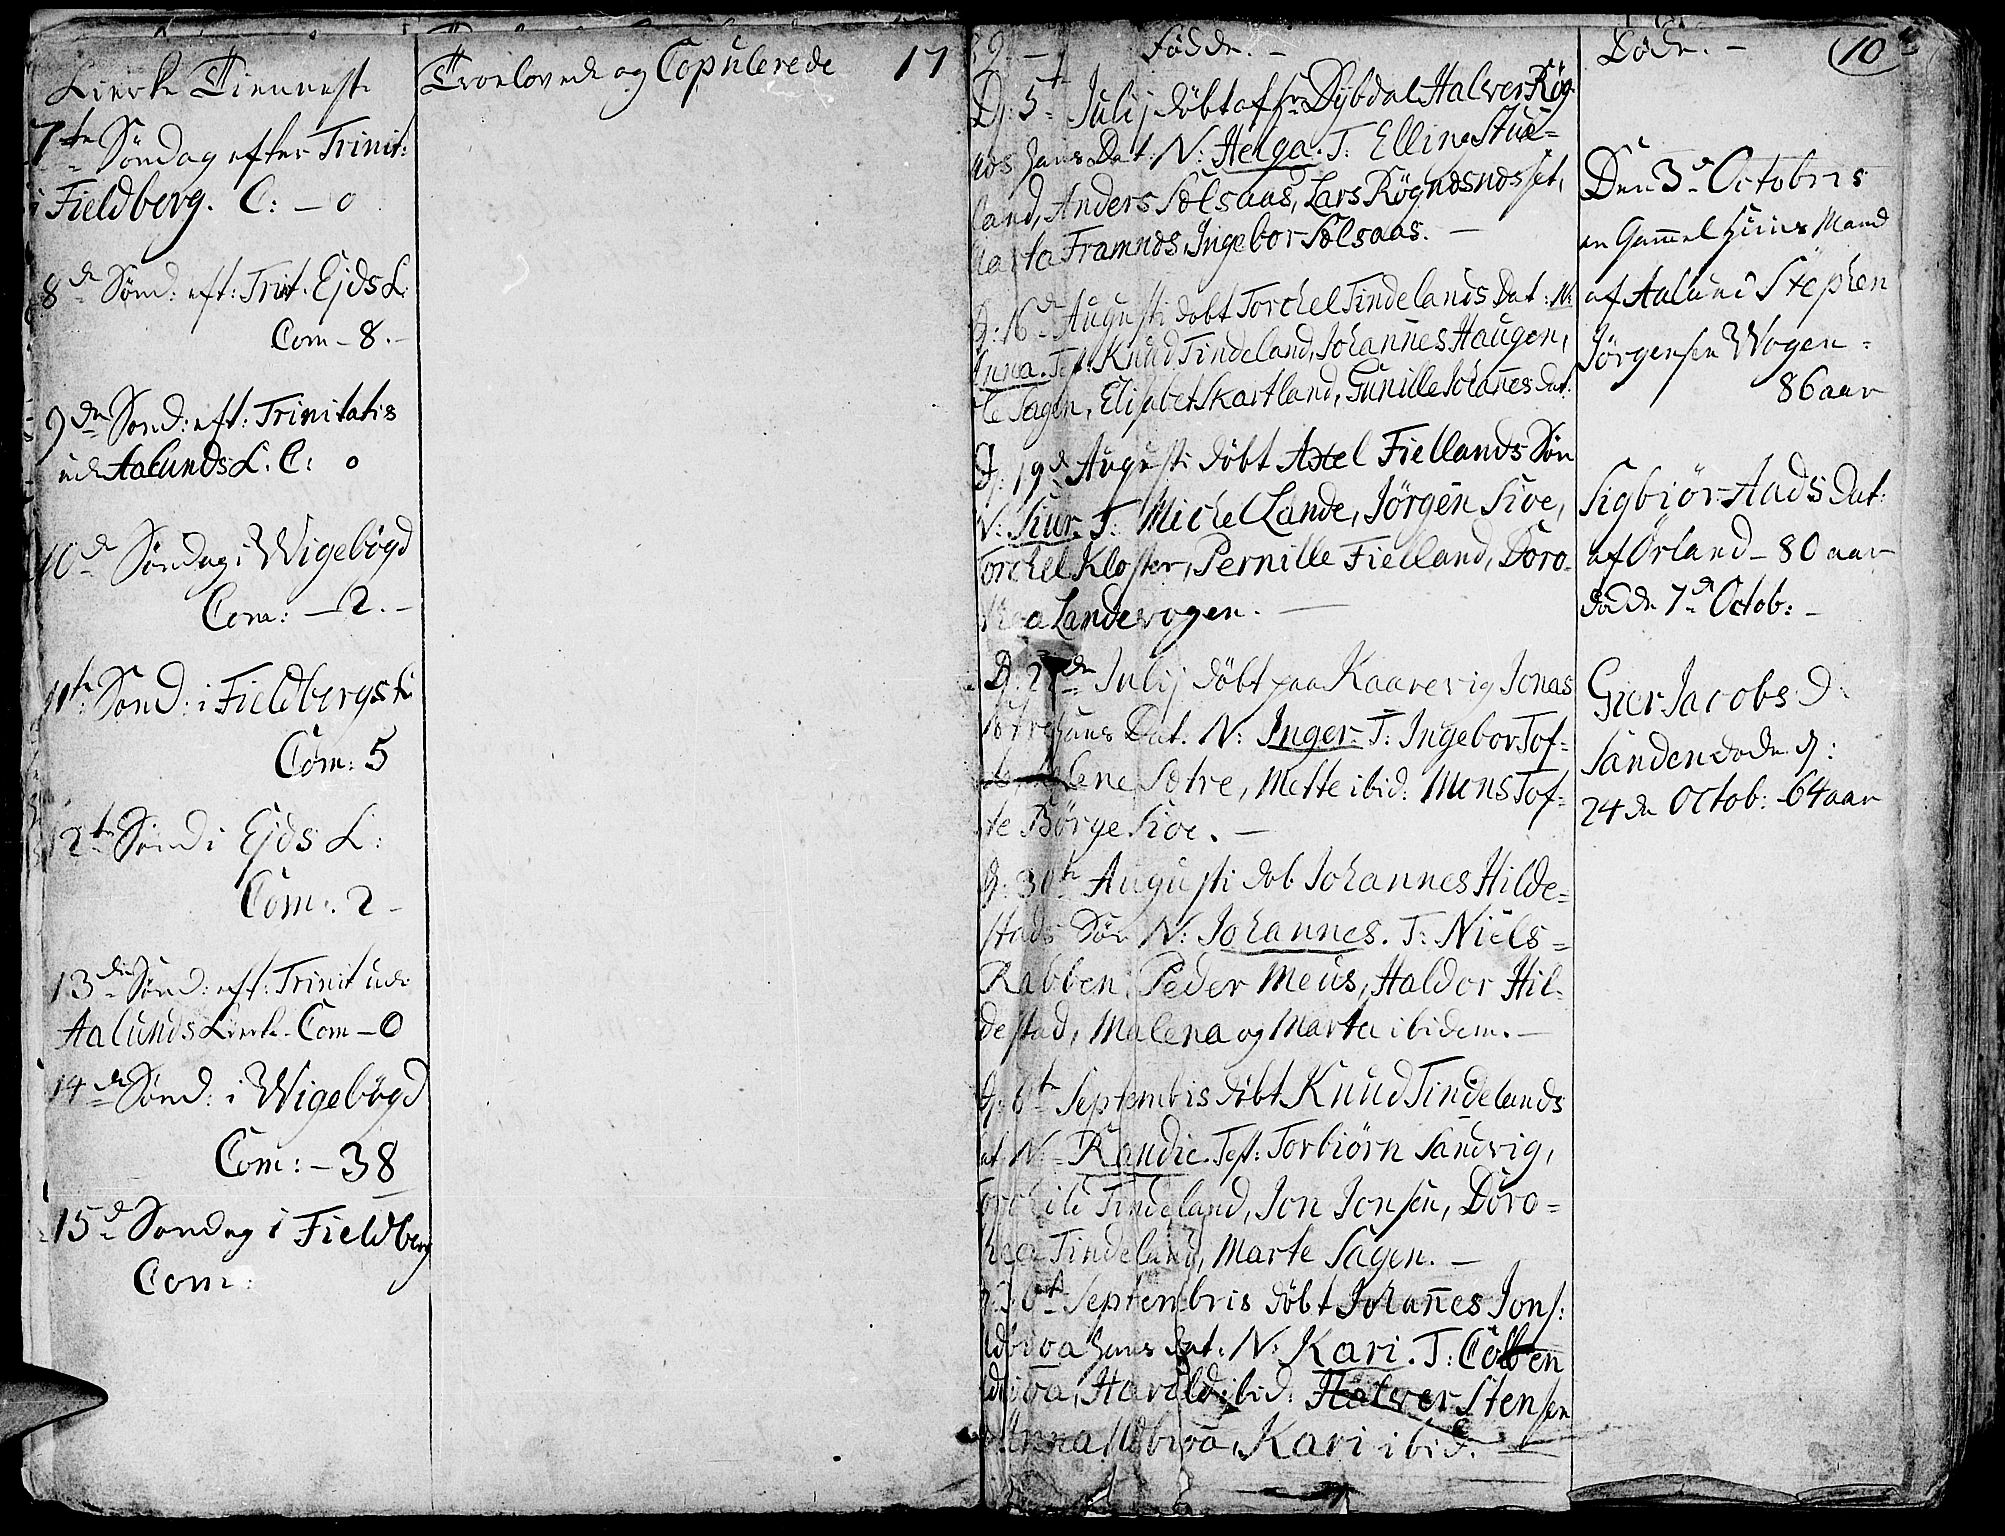 Kierke Tienneste
7te Søndag efter Trinit:
i Fieldberg. C: – 0
8de Sønd: eft: Trit. Ejds K:
Com – 8. –
9de Sønd: eft: Trinitatis
udi Aalunds K. C: 0
10de Søndag i Wigebøgd
Com: – 2. –
11te Sønd: i Fieldbergs K:
Com: 5
12te Sønd i Ejds K:
Com: 2 –
13de Sønd: eft: Trinit udi
Aalunds Kierke – Com – 0
14de Sønd: i Wigebøgd
Com: – 38
15de Søndag i Fieldberg
Com:
Troelovede og Copulerede 17
39. – Fødde. –
D: 5te Julij døbt af Hr Dybdal Halver Røg-
nds Hans Dat. N: Helga. T: Elling Stue-
land, Anders Sølsaas, Lars Røgndsnds set,
Marta Framnds, Ingebor Sølsaas. –
D: 16de Augusti døbt Torchel Tindelands Dat: N:
Anna. Test: Knud Tindeland, Johannes Haugen,
Ole Sagen, Elisabet Skartland, Gunille Johañes Dat:
D: 19de Augusti døbt Axel Fiellands Søn
N: Siur. T: Michel Lande, Jørgen Sioe,
Torchel Kloster, Pernille Fielland, Doro-
thea Landevogen. –
D: 2 de Julij døbt paa Kaarevig Jonas
Sotre Hans Dat. N: Inger. T: Ingebor Tof-
te Lene Sotre, Mette ibid: Mons Tof-
te Børge Sioe. –
D: 30te Augusti døb Johannes Hilde-
stads Søn N: Johannes. T: Niels –
Rabben, Peder Meus, Haldor Hil-
destad, Malena og Marta ibidem. –
D: 6te Septembris døbt Knud Tindelands
Dat. N: Randie. Test: Torbiørn Sandvig,
Torchild Tindeland, Jon Jonsen, Doro-
thea Tindeland, Marte Sagen. –
D: 6te Septembris døbt Johañes Jons:
Hans Dat. N: Kari. T: Colben
Harald ibid: Halver Stensen
Anna Kari ibid. –
Døde. – 10
Den 3de Octobris
en Gam̃el Huus Mand
af Aalund Stephen
Jørgensen Wogen –
86 aar
Sigbiør Aads Dat:
af Ørland – 80 aar
død de 7de Octob: –
Gier Jacobs D:
Sanden døde D:
24de Octob: – 64 aar